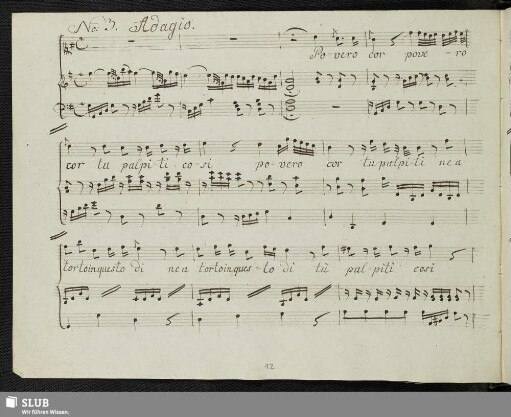 No: 3. Adagio.
Povero cor pove - ro
cor tu palpi - ti - co - si po - vero cor tu palpi - ti ne a
torto in questo di ne a torto in ques - to di tu pal piti cosi
12
SLUB
Wir führen Wissen.